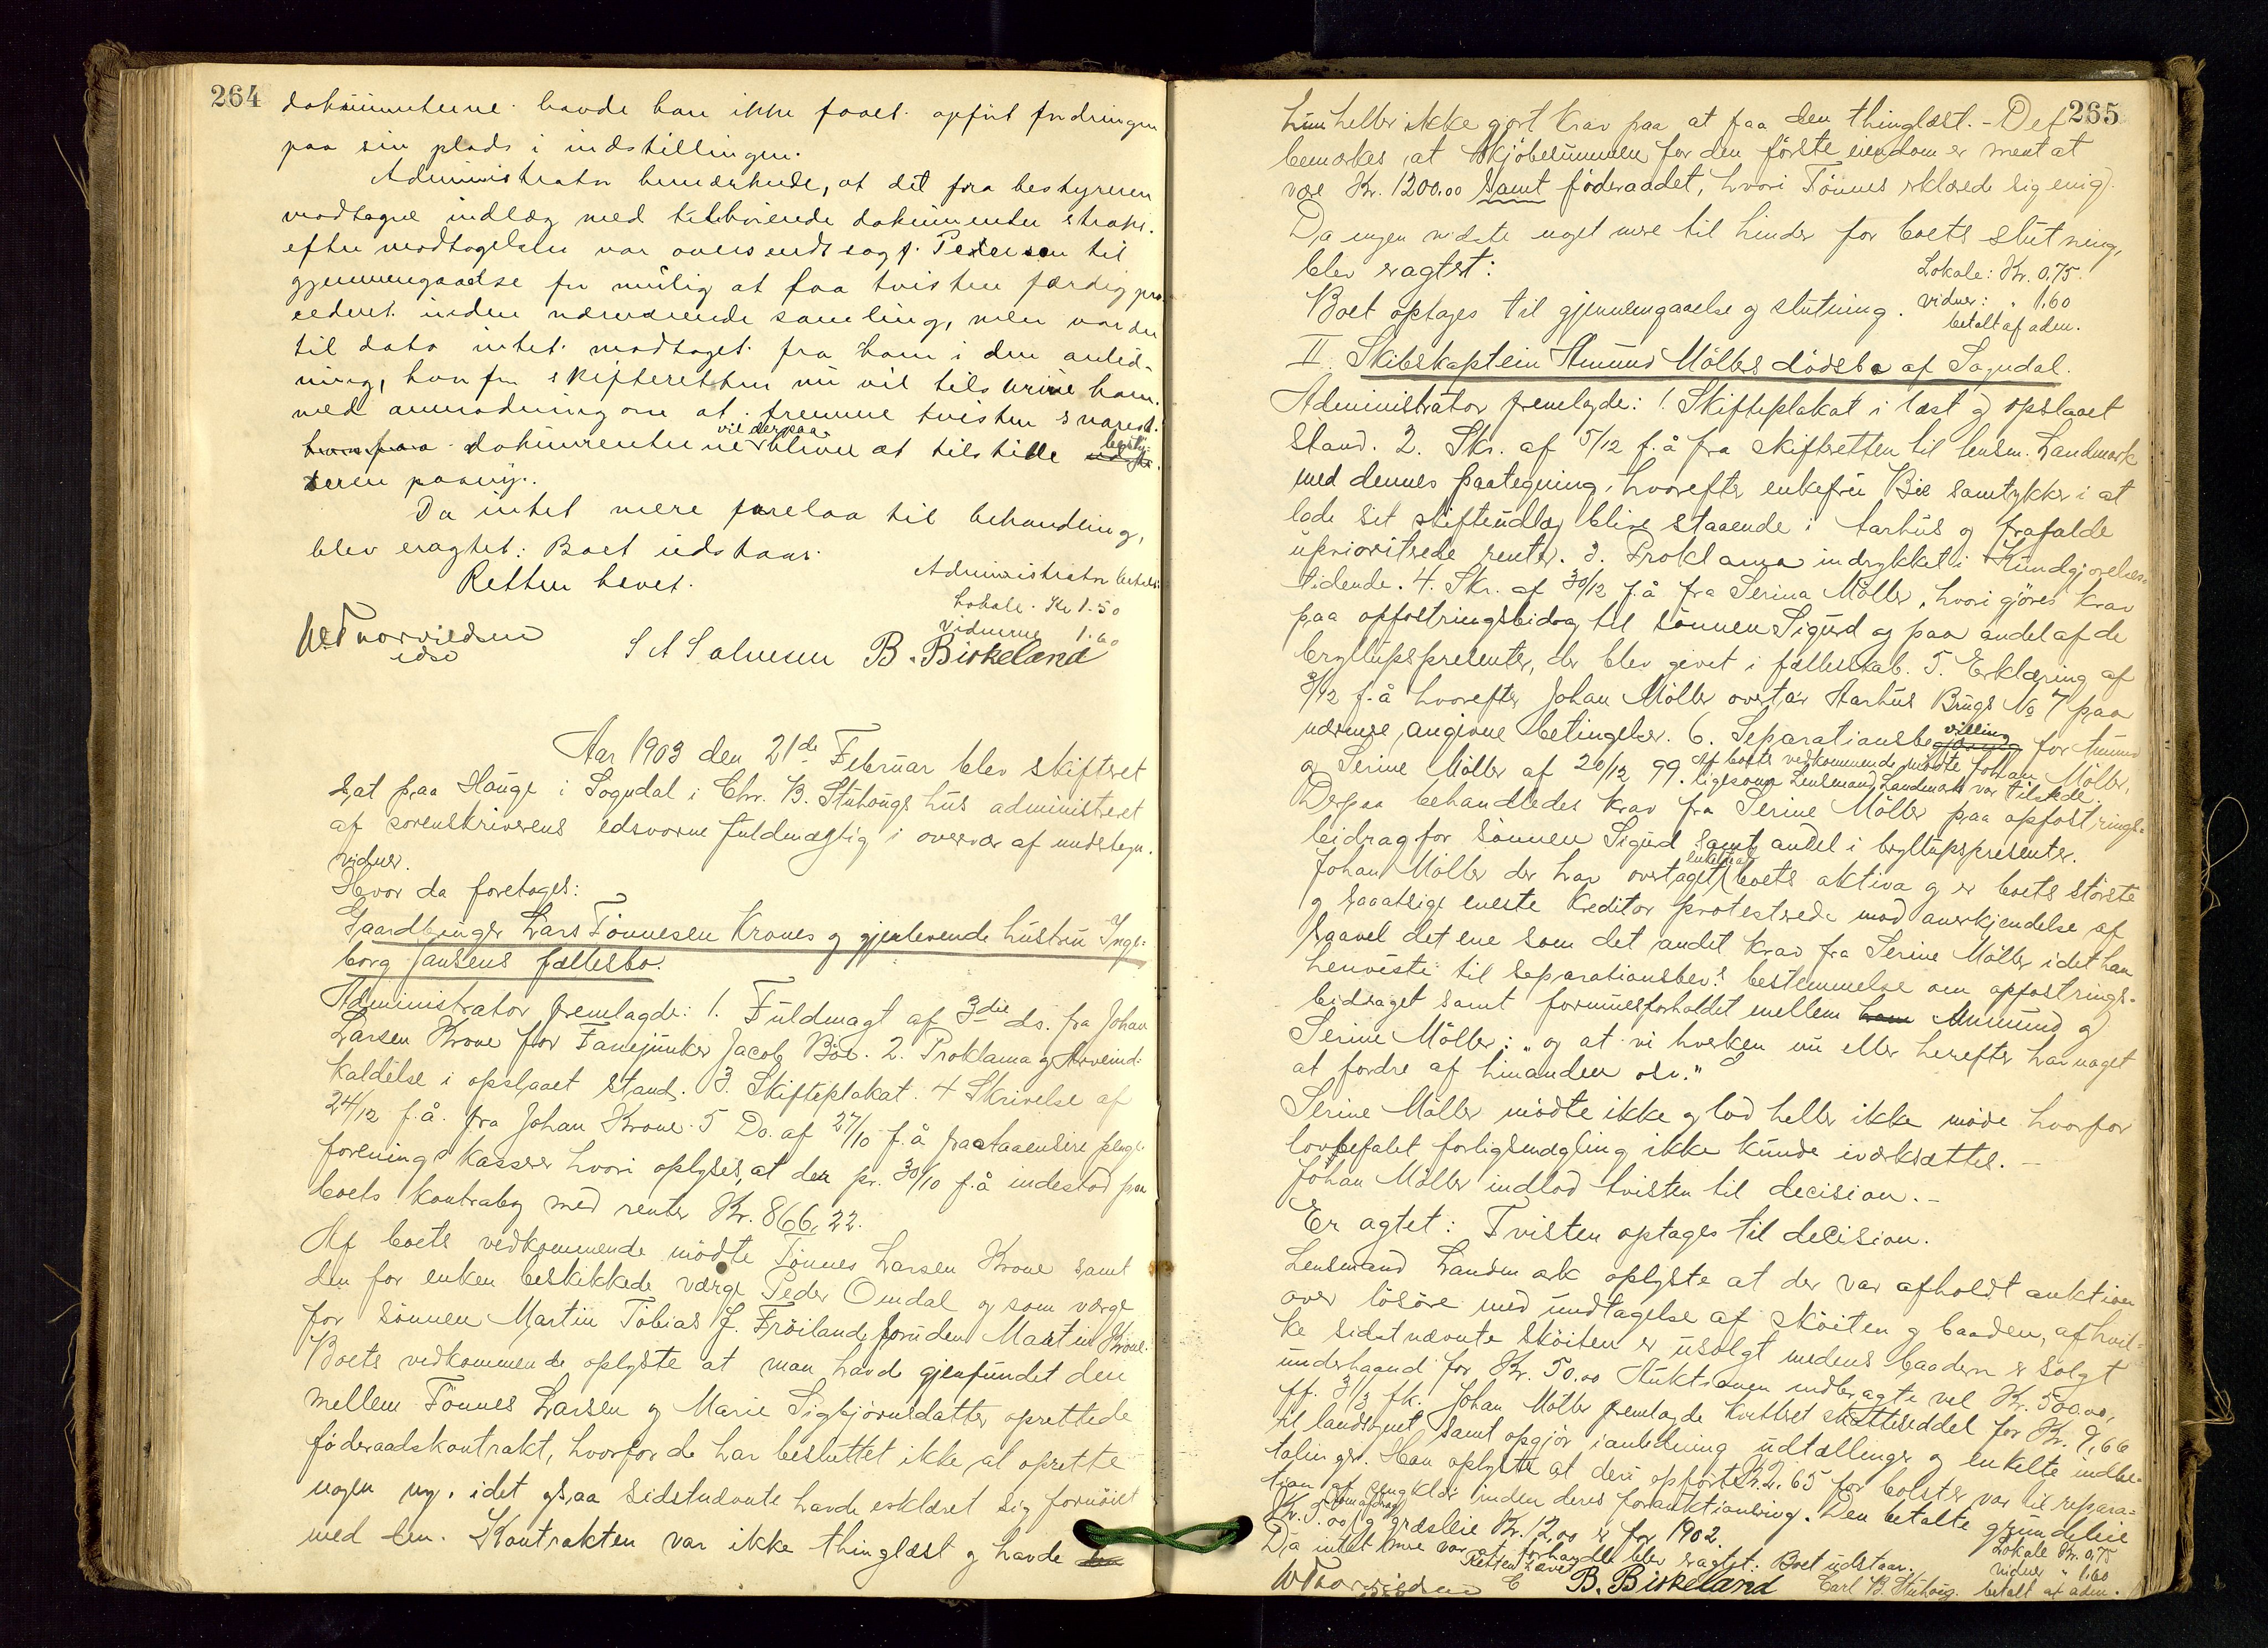 264
dokumenterne havde han ikke faaet opført fordringen
paa sin plads i indstillingen.
Administrator bemærkede, at det fra bestyreren
modtagne indlæg med tilhörende dokumenter straks
efter modtagelsen var oversendt sagf. Pedersen til
gjennemgaaelse for mulig at faa tvisten færdig pro-
cederet inden nærværende samling, men var der
til dato intet modtaget fra ham i den anled-
ning, hvorfor skifteretten nu vil tilskrive ham
med anmodning om at fremme tvisten snarest.
dokumenterne vil derpaa blive at tilstille besty-
reren paany.
Da intet mere forelaa til behandling,
blev eragtet: Boet udstaar.
Retten hævet.
Administrator betalt
Lokale. Kr 1.50
Vidnerne 1.60
W Thorvildsen
edsv
S A Salvesen B. Birkeland
Aar 1903 den 21de Februar blev skifteret
sat paa Hauge i Sogndal i Chr. B. Stuhougs hus administreret
af sorenskriverens edsvorne fuldmægtig i overvær af undertegn.
vidner.
Hvor da foretoges:
Gaardbruger Lars Tönnesen Krones og gjenlevende hustru Inge-
borg Jansens fællesbo.
Administrator fremlagde: 1. Fuldmagt af 3die ds. fra Johan
Larsen Krone for Fanejunker Jacob Böe. 2. Proklama og Arveind-
kaldelse i opslaaet stand. 3. Skifteplakat. 4 Skrivelse af
24/12 f.å. fra Johan Krone. 5 Do. af 27/10 f.å fra
forenings kasserer hvori oplyses, at der pr. 30/10 f.å indestod paa
boets kontrabog med renter Kr. 866,22.
Af boets vedkommende mödte Tönnes Larsen Krone samt
den for enken beskikkede værge Peder Omdal og som værge
for sönnen Martin Tobias J. Fröiland foruden Martin Krone.
Boets vedkommende oplyste at man havde gjenfundet den
mellem Tönnes Larsen og Marie Sigbjörnsdatter oprettede
föderaadskontrakt, hvorfor de har besluttet ikke at oprette
nogen ny, idet ogsaa sidstnævnte havde erklæret sig fornöiet
med den. Kontrakten var ikke thinglæst og havde
265
hun heller ikke gjort krav paa at faa den thinglæst. - Det
bemærkes, at skjöbesummen for den förste eiendom er ment at
være Kr. 1200.00 samt föderaadet, hvori Tönnes erklærede sig enig.
Da ingen vidste noget mere til hinder for boets slutning,
blev eragtet:
Boet optages til gjennemgaaelse og slutning.
Lokale: Kr. 0,75.
vidner: " 1,60
betalt af adm.
II. Skibskaptein Amund Möllers dödsbo af Sogndal.
Administrator fremlagde: 1. Skifteplakat i læst og opslaaet
stand. 2. Skr. af 5/12 f.å fra skifteretten til lensm. Landmark
med dennes paategning, hvorefter enkefru Bie samtykker i at
lade sit skifteudlæg blive staaende i Aarhus og frafalde
uprioriterede renter. 3. Proklama indrykket i Kundgjörelses-
tidende. 4. Skr. af 30/12 f.å fra Serina Möller, hvori gjöres krav
paa opfostringsbidrag til sönnen Sigurd og paa andel af de
bryllupspresenter, der blev givet i fællesskab. 5. Erklæring af
3/12 f.å hvorefter Johan Möller overtar Aarhus Brugs No 7 paa
nærmere angivne betingelser. 6. Separationsbevilling for Amund
og Serine Möller af 20/12 99. Af boets vedkommende mödte Johan Möller,
ligesom Lensmand Landmark var tilstede.
Derpaa behandledes krav fra Serine Möller paa opfostrings-
bidrag for sönnen Sigurd samt andel i bryllupspresenter.
Johan Möller der har overtaget boets aktiva og er boets störste
og saaatsige eneste kreditor protesterede mod anerkjendelse af
saavel det ene som det andet krav fra Serine Möller idet han
henviste til separationsbev.s bestemmelse om opfostrings-
bidraget samt formuesforholdet mellem Ammund og
Serine Möller: "og at vi hverken nu eller herefter har noget
at fordre af hinanden osv."
Serine Möller mödte ikke og lod heller ikke möde hvorfor
lovbefalet forligsmægling ikke kunde iværksættes. -
Johan Möller indlod tvisten til decision. -
Er agtet: Tvisten optages til decision.
Lensmand Landmark oplyste at der var afholdt auktion
over lösöre med undtagelse af sköiten og baaden, af hvil-
ke sidstnævnte sköiten er usolgt medens baaden er solgt
underhaand for Kr. 50.00 Auktionen indbragte vel Kr. 500.00,
ff. 3/3 fk. Johan Möller fremlagde kvitteret skatteseddel for Kr. 9,66
til landsognet samt opgjör i anledning udtællinger og enkelte indbe-
talinger. Han oplyste at den opförte Kr. 2.65 for bolster var til repara-
tion af gangklær inden deres forauktionering. Den betalte grundleie
Kr. 5.00 og græsleie Kr. 12,00 er for 1902.
Da intet mere var at forhandle blev eragtet: Boet udstaar.
Retten hævet
Lokale Kr. 0,75
vidner " 1,60
betalt af adm.
W Thorvildsen B. Birkeland Carl B. Stuhoug.